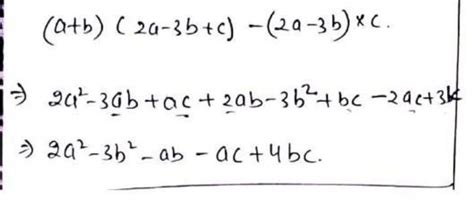 (a+b) (2a-3b+c) -(2a-3b)×c.
⇒ 2a²-3ab+ac+2ab-3b²+bc-2ac+3b
⇒ 2a²-3b²-ab-ac+4bc.